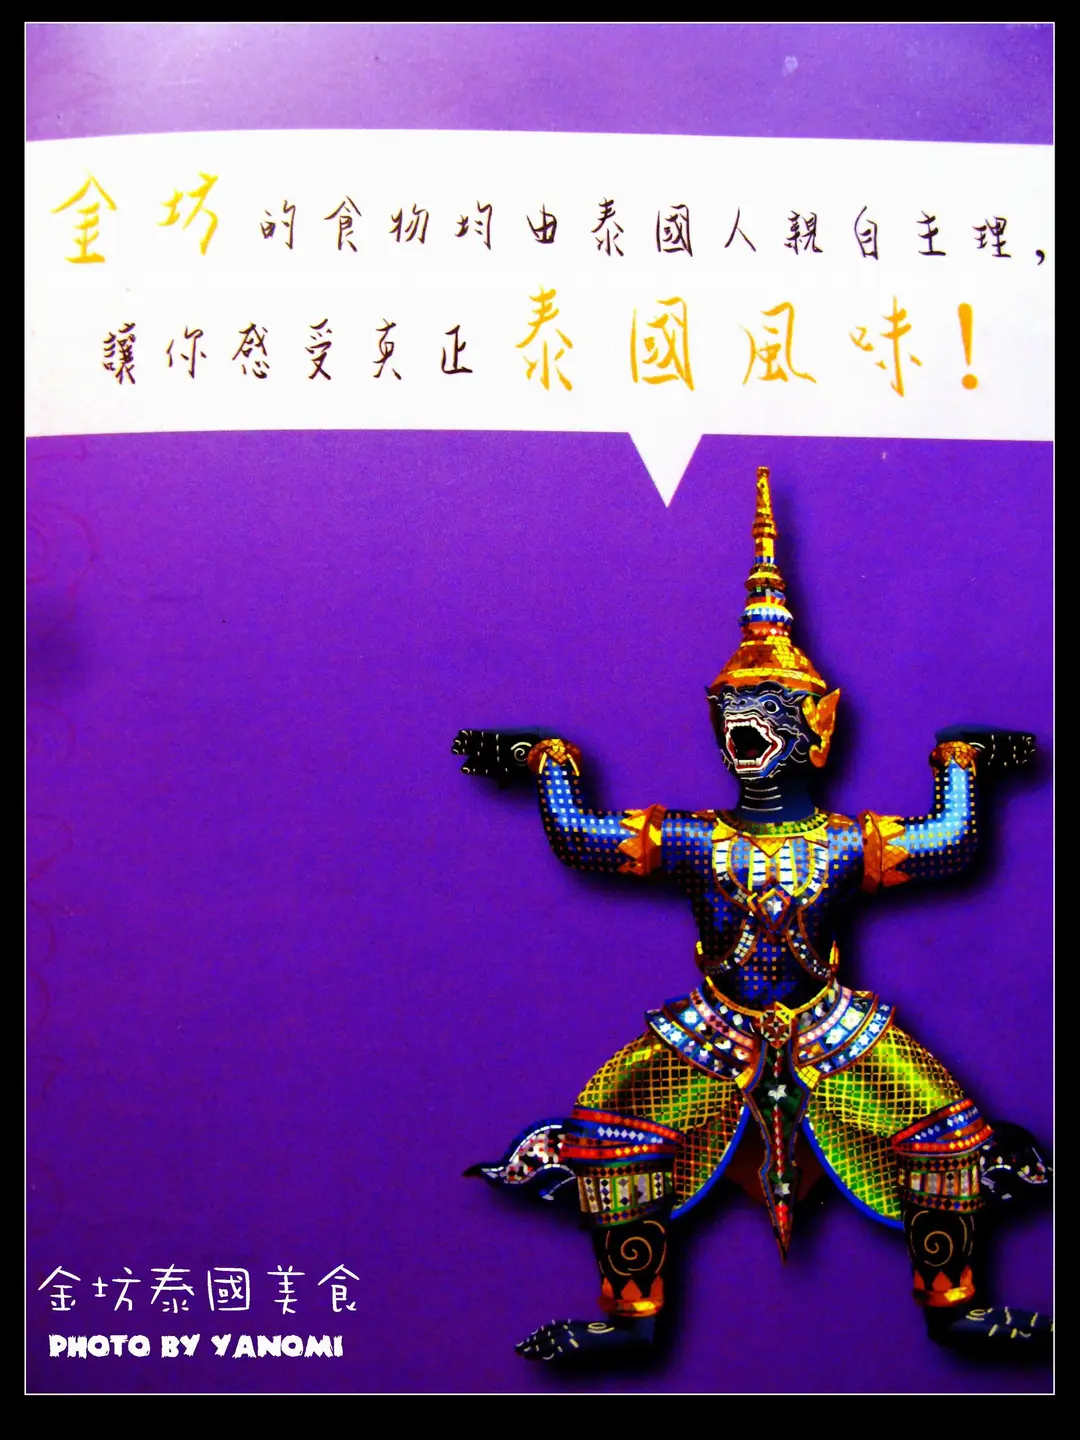 金坊的食物均由泰國人親自主理，
讓你感受真正泰國風味！
金坊泰國美食
PHOTO BY YANOMI